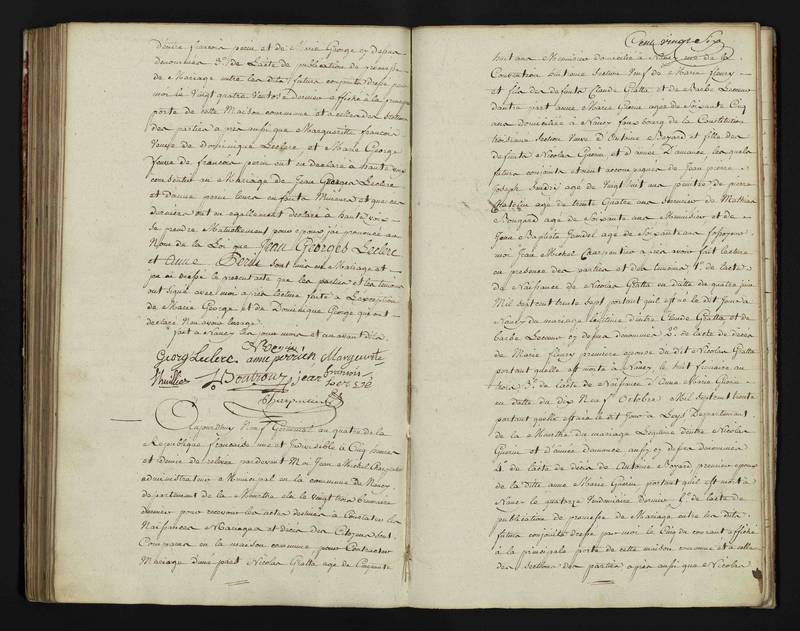 denommés 3.º de l'acte de publication de promesse
de Mariage entre les dits futurs conjoints dressé par
moi le vingt quatre Ventose dernier affiché à la principale
porte de cette Maison commune et à celles des sections
des parties après aussi que Marguerite françois
Veuve de Dominique Leclerc et Marie George
Veuve de françois perin ont eu déclaré à haute voix
consentir au Mariage de Jean Georges Leclerc
et d'anne perin leurs enfants Mineurs et que ces
derniers ont eu egallement déclaré à haute voix
se prendre Mutuellement pour epoux j'ai prononcé au
Nom de la Loi que Jean Georges Leclerc
et Anne Perin sont unis en Mariage et
j'ai dressé le present acte que les parties et les temoins
ont signé avec moi après lecture faite à l'exception
de Marie George et de Dominique George qui ont
declaré N'en avoir l'usage
fait à Nancy les jour mois et an avant dits.
Georg Leclerc anne perrin Marguerit
Thuillier françois
Aujourd'huy Germinal an quatre de la
République française une et Indivisible à Cinq heures
et demie de relevée pardevant Moi Jean Michel Charpentier
administrateur Municipal en la commune de Nancy
departement de la Meurthe élu le vingt trois brumaire
dernier pour recevoir les actes destinés à Constater les
Naissances Mariages et décès des Citoyens sont
Comparus en la maison commune pour Contracter
Mariage d'une part Nicolas Glatte agé de Cinquante
Cent vingt Six
huit ans Menuisier domicilié à Nancy rue de la
Convention huitieme Section Veuf de Marie fleury
et fils des defunts Claude Glatte et de Barbe Lecomte
D'autre part anne Marie Guerin agée de Soixante Cinq
ans domiciliée à Nancy faux bourg de la Constitution
troisieme Section Veuve d'Antoine Boyard et fille des
defunts Nicolas Guerin et d'anne D'amance, les quels
futurs conjoints etoient accompagnés de Jean pierre
Joseph agé de Vingt huit ans peintre de pierre
Chatelin agé de trente Quatre ans Serrurier de Mathias
Bougard agé de Soixante ans Menuisier et de
Jean Baptiste agé de Soixante ans fossoyeur
moi Jean Michel Charpentier après avoir fait lecture
en presence des parties et des temoins 1.º de l'acte
de Naissance de Nicolas Glatte en datte du quatre juin
Mil sept cent trente Sept portant qu'il est né le dit Jour à
Nancy du mariage légitime d'entre Claude Glatte et de
barbe Lecomte cy devant denommés 2.º de l'acte de décès
de Marie fleury premiere epouse du dit Nicolas Glatte
portant qu'elle est morte à Nancy, le huit frimaire an
trois 3.º de l'acte de Naissance d'Anne Marie Guerin
en datte du dix Neuf Octobre Mil Sept cent trente
portant qu'elle est née le dit Jour à Leys Departement
de la Meurthe du mariage Légitime d'entre Nicolas
Guerin et d'anne d'amance aussy cy devant denommés
4.º de l'acte de décès de Antoine Boyard premier epoux
de la ditte anne Marie Guerin portant qu'il est mort à
Nancy le quatorze Vendemiaire dernier 5.º de l'acte de
publication de promesse de Mariage entre les dits
futurs conjoints dressé par moi le Cinq du courant affiché
à la principale porte de cette maison commune et à celles
des Sections des parties après aussi que Nicolas